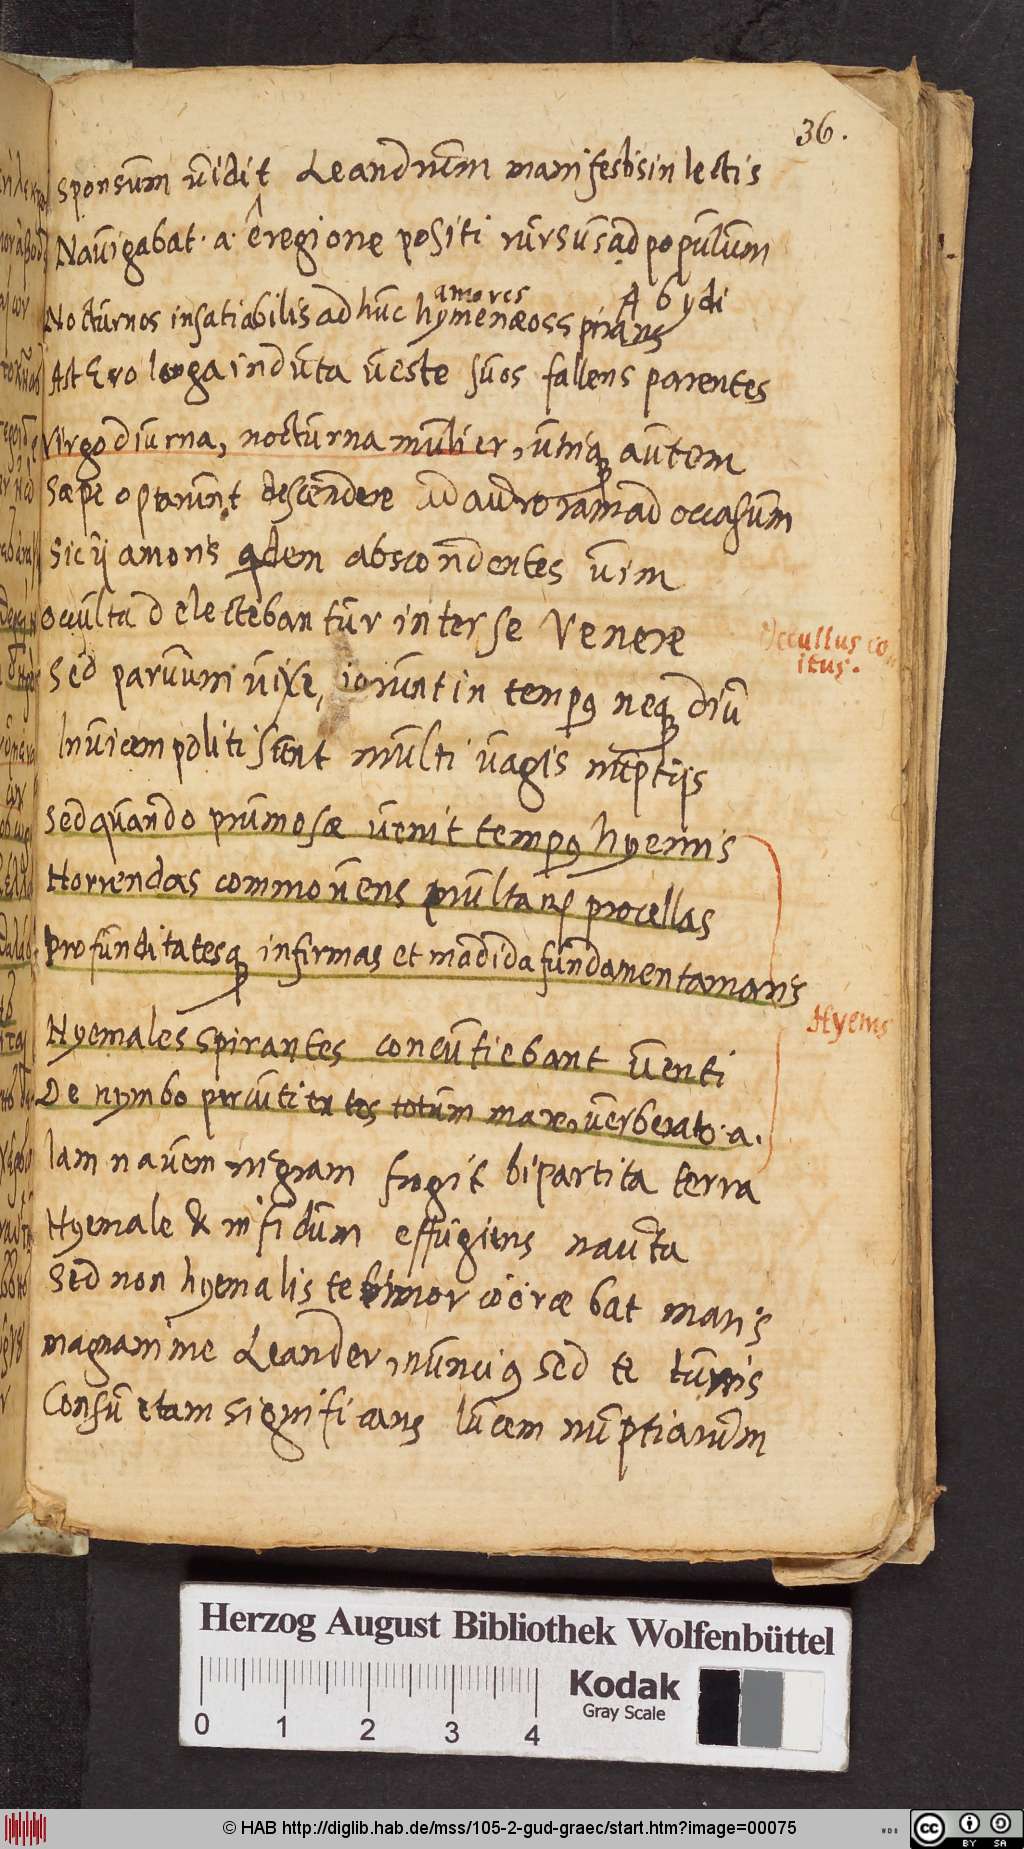 36.
sponsum uidit Leandrum manifestis in lectis
Nauigabat. a. êregione positi rursus ad populum
Abydi
amores
Nocturnos insatiabilis ad huc hymenæos spirans
Ast Ero longa induta ueste suos fallens parentes
Virgo diurna, nocturna mulier, utriq autem
Sæpe optarunt descendere ad auroram ad occasum
Sic ij amoris qdem abscondentes uim
Occulta delectebantur inter se Venere
Occultus co
itus.
Sed paruum uixe, runt in tempq neq diu
Inuicem politi sunt multi uagis nuptijs
Sed quando prumosæ uenit tempq hyemis
Horrendas commouens multarq procellas
Profunditatesq infirmas et madida fundamenta maris
Hyems
Hyemales spirantes concutiebant uenti
De nymbo percutientes totum mare, uerberato. a.
Iam nauem nigram fregit bipartita terra
Hyemale & infidum effugiens nauta
Sed non hyemalis te timor coërcebat maris
magnanime Leander, nunciq sed te turris
Consuetam significans lucem nuptiarum
Herzog August Bibliothek Wolfenbüttel
0 1 2 3 4
Kodak
Gray Scale
© HAB http://diglib.hab.de/mss/105-2-gud-graec/start.htm?image=00075
WDB
cc BY SA